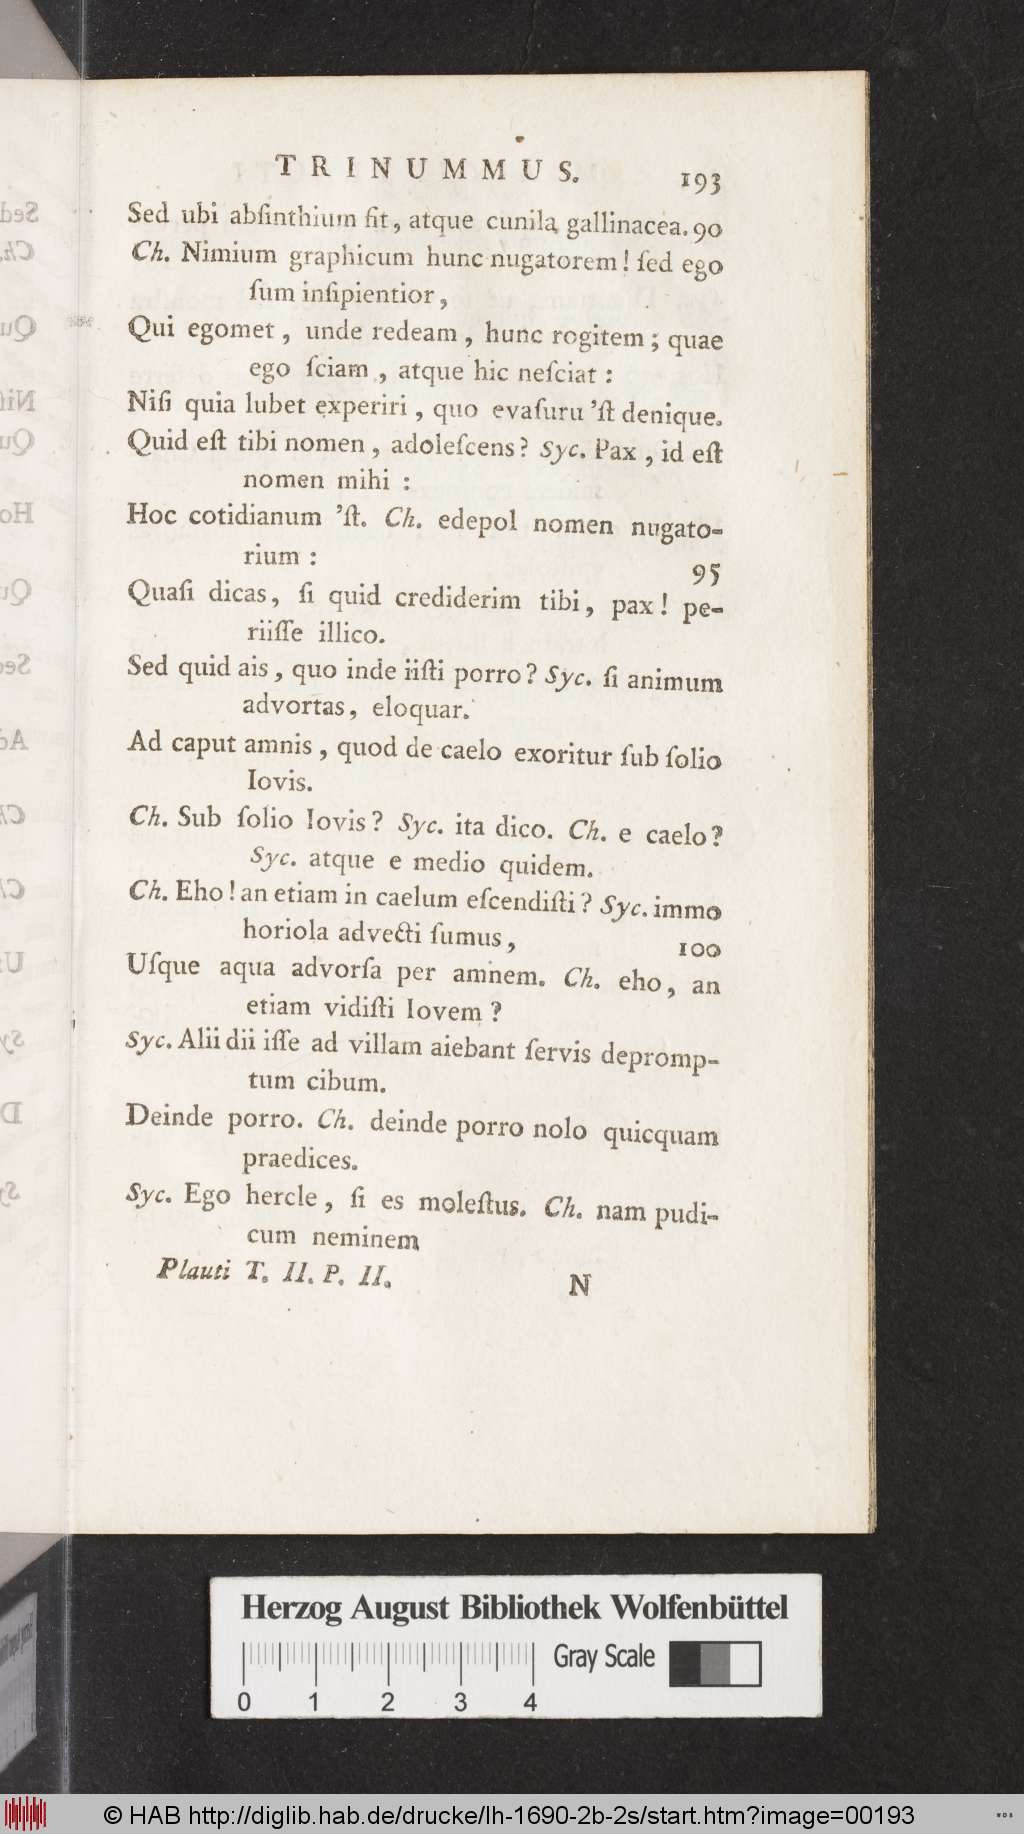 TRINUMMUS. 193
Sed ubi abſinthium ſit, atque cunila gallinacea. 90
Ch. Nimium graphicum hunc nugatorem! ſed ego
ſum inſipientior,
Qui egomet, unde redeam, hunc rogitem; quae
ego ſciam, atque hic neſciat:
Niſi quia lubet experiri, quo evaſuru 'ſt denique.
Quid eſt tibi nomen, adoleſcens? Syc. Pax, id eſt
nomen mihi:
Hoc cotidianum 'ſt. Ch. edepol nomen nugato-
rium: 95
Quaſi dicas, ſi quid crediderim tibi, pax! pe-
riiſſe illico.
Sed quid ais, quo inde iiſti porro? Syc. ſi animum
advortas, eloquar.
Ad caput amnis, quod de caelo exoritur ſub ſolio
Iovis.
Ch. Sub ſolio Iovis? Syc. ita dico. Ch. e caelo?
Syc. atque e medio quidem.
Ch. Eho! an etiam in caelum eſcendiſti? Syc. immo
horiola advecti ſumus, 100
Uſque aqua advorſa per amnem. Ch. eho, an
etiam vidiſti Iovem?
Syc. Alii dii iſſe ad villam aiebant ſervis depromp-
tum cibum.
Deinde porro. Ch. deinde porro nolo quicquam
praedices.
Syc. Ego hercle, ſi es moleſtus. Ch. nam pudi-
cum neminem
Plauti T. II. P. II. N
Herzog August Bibliothek Wolfenbüttel
Gray Scale
0 1 2 3 4
© HAB http://diglib.hab.de/drucke/lh-1690-2b-2s/start.htm?image=00193